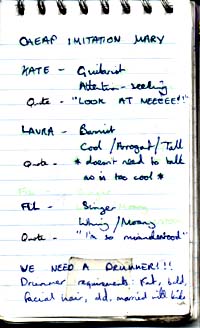 CHEAP IMITATION MARY
KATE - Guitarist
Attention-seeking
Quote - "LOOK AT MEEEEE!!"
LAURA - Bassist
Cool / Arrogant / Tall
Quote - * doesn't need to talk
as is too cool *
FIL - Singer
Whiny / Moany
Quote - "I'm so misunderstood"
WE NEED A DRUMMER!!!
Drummer requirements: Fat, bald,
facial hair, old, married with kids